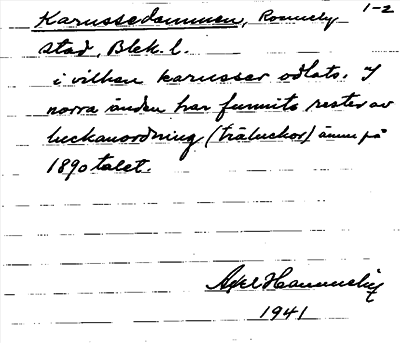 Karussedammen, Ronneby 1-2
stad, Blek. l.
i vilken karusser odlats. I
norra änden har funnits rester av
luckanordning (träluckor) ännu på
1890 talet.
Axel
1941